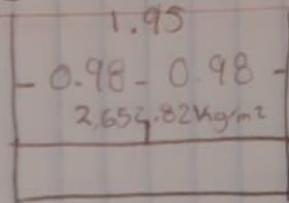 1.95
- 0.98 - 0.98 -
2,652.82Kg/m²